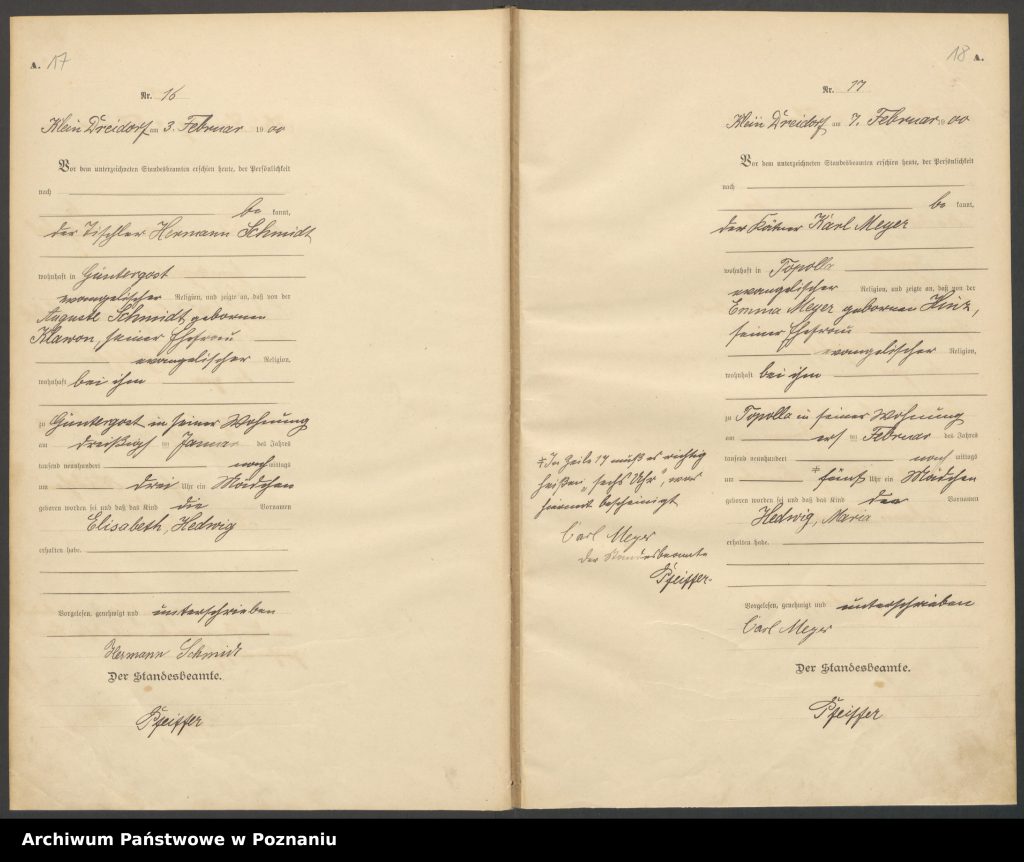 A. 17
Nr. 16
Klein Dreidorf am 3. Februar 1900
Vor dem unterzeichneten Standesbeamten erschien heute, der Persönlichkeit
nach
be kannt,
der Tischler Hermann Schmidt
wohnhaft in Güntergost
evangelischer Religion, und zeigte an, daß von der
Auguste Schmidt geborenen
Klawon, seiner Ehefrau
evangelischer Religion,
wohnhaft bei ihm
zu Güntergost in seiner Wohnung
am dreißigsten Januar des Jahres
tausend neunhundert nachmittags
um drei Uhr ein Mädchen
geboren worden sei und daß das Kind die Vornamen
Elisabeth, Hedwig
erhalten habe.
Vorgelesen, genehmigt und unterschrieben
Hermann Schmidt
Der Standesbeamte.
Pfeiffer
18 A.
Nr. 17
Klein Dreidorf am 7. Februar 1900
Vor dem unterzeichneten Standesbeamten erschien heute, der Persönlichkeit
nach
be kannt,
der Kätner Karl Meyer
wohnhaft in Topolla
evangelischer Religion, und zeigte an, daß von der
Emma Meyer geborenen Hinz,
seiner Ehefrau
evangelischer Religion,
wohnhaft bei ihm
zu Topolla in seiner Wohnung
am ersten Februar des Jahres
tausend neunhundert nachmittags
um * fünf Uhr ein Mädchen
geboren worden sei und daß das Kind Vornamen
Hedwig, Maria
erhalten habe.
Vorgelesen, genehmigt und unterschrieben
Carl Meyer
Der Standesbeamte.
Pfeiffer
* In Zeile 17 muß es richtig
heißen „sechs Uhr", was
hiermit bescheinigt
Carl Meyer
Der Standesbeamte
Pfeiffer.
Archiwum Państwowe w Poznaniu